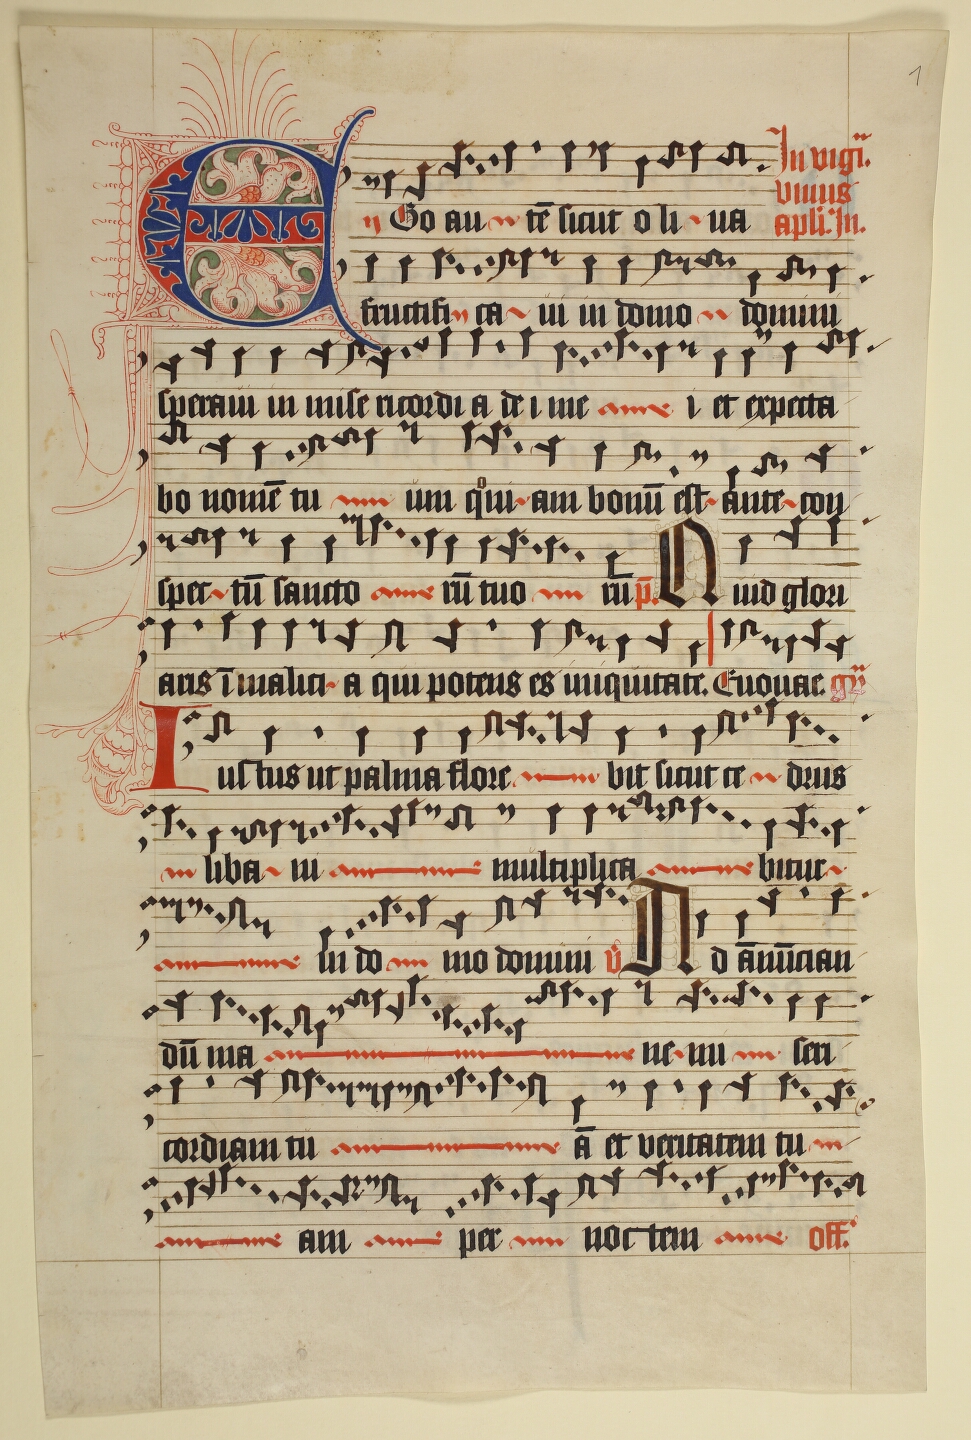 1
In vigi͞.
EGo au tē sicut o li ua
vnius
apli. In.
fructifi ca ui in domo domini
speraui in mise ricordi a de i me i et expecta
bo nomē tu um qͦui am bonū est ante con
spec tū sancto rū tuo rū p̄. Quid glori
aris ī malici a qui potens es iniquitate. Euouae. gr̄
Iustus ut palma flore bit sicut ce drus
liba ni multiplica bitur
In do mo domini v̄ Ad ānūcian
dū ma ne mi seri
cordiam tu ā et veritatem tu
am per noctem off.